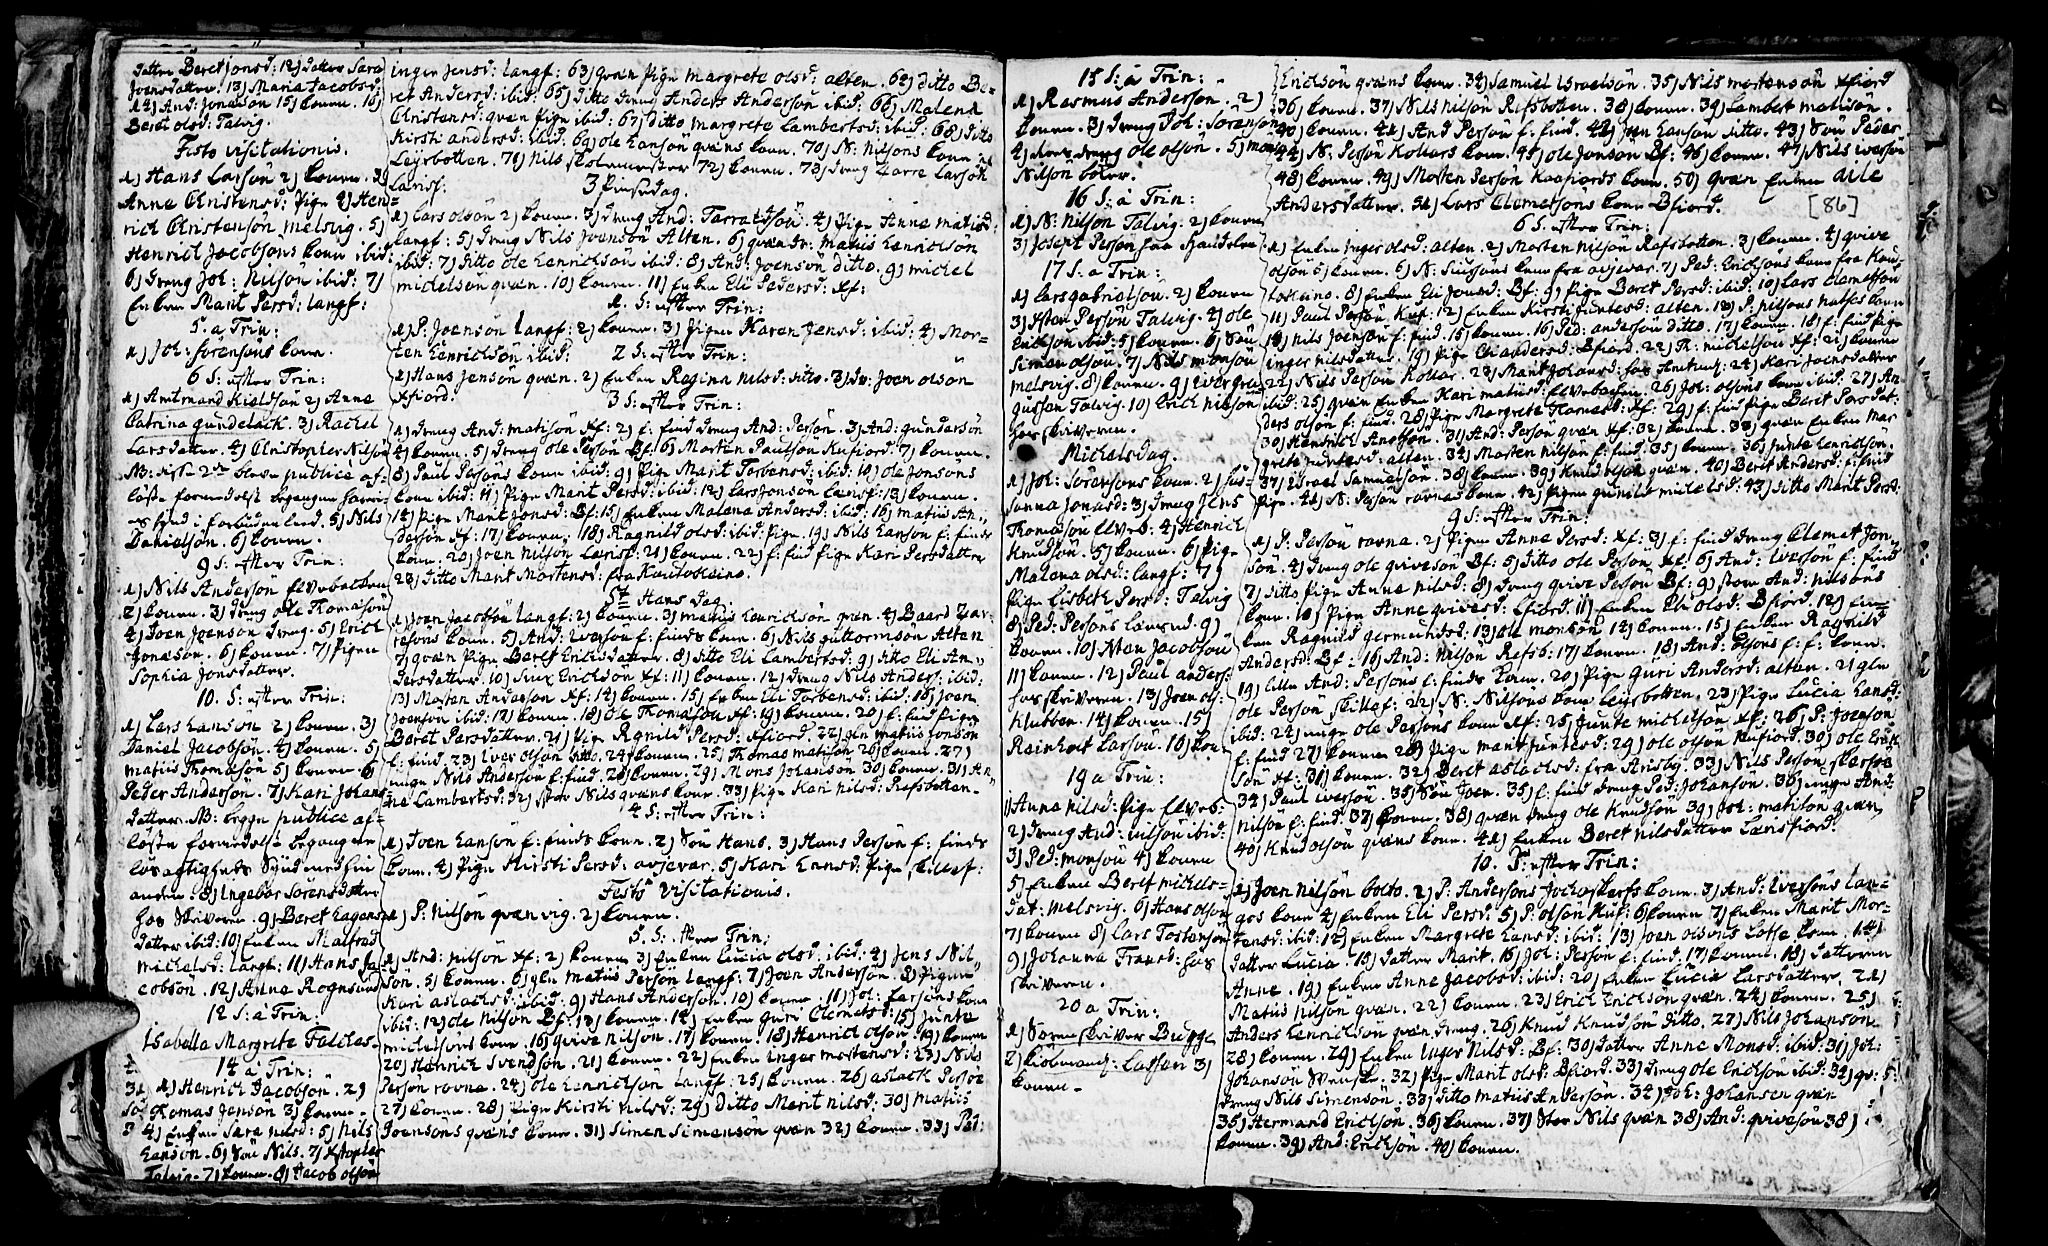 datter Beret Jonsd: 12) datter Sara
Joensdatter. 13) Maria Jacobsd:
14) And: Jonasön 15) konen. 16)
Beret olsd: Talvig.
Festo visitationis.
1) Hans Larsön 2) konen. 3)
Anne Christensd: Pige 4) Hen=
rich Christensön melsvig. 5)
Henrich Jacobsöns kone ibid:
6) Dreng Joh: Nilsön ibid: 7)
Enken Marit Persd: langf:
5. a Trin:
1) Joh: Sörensöns kone.
6 S: efter Trin:
1) Amtmand Kieldsön 2) Anne
Catrina gundelach. 3) Rachel
Larsdatter. 4) Christopher Nilsön
NB: disse 2de bleve publice af-
löste formedelst begangen
i forbuden leed. 5) Nils
Danielsön. 6) konen.
9 S: efter Trin:
1) Nils Andersön Elvebakken
2) konen. 3) Dreng ole Thomasön
4) Joen Joensön Dreng. 5) Erich
Jonasön. 6) konen. 7) Pigen
Sophia Jonsdatter.
10. S: efter Trin:
1) Lars Hansön 2) konen. 3)
Daniel Jacobsön. 4) konen. 5)
matis Thomasön 5) konen 6)
Peder Andersön. 7) Kari Johans=
datter. NB: begge publice af=
löste formedelst begangen
lösagtigheds Synd med hin
anden. 8) Ingebor Sörensdatter
hos Skriveren. 9) Beret Hagens
datter ibid: 10) Enken Malfred
michelsd: langf: 11) Hans Ja=
cobsön. 12) Anna Rognsund
12 S: a Trin:
Isabella Margrete Falches
14 a Trin:
1) Henrich Jacobsön. 2)
Thomas Jensön 3) konen.
4) Enken Sara nilsd: 5) Nils
Hansön. 6) Sön Nils. 7) Xstopher
Talvig. 7) konen. 8) Jacob olsön
Inger Jensd: langf: 63) qvæn Pige Margrete olsd: alten. 64) ditto Be=
ret Andersd: ibid: 65) Ditto Dreng Anders Andersön ibid: 66) Malena
Christensd: qvæn Pige ibid: 67) Ditto margrete Lambertsd: ibid: 68) Ditto
Kirsti andersd: ibid: 69) ole Hansön qvæns kone. 70) N: Nilsöns kone
Leyrbotten. 71) Nils skolemester 72) konen. 73) Dreng Zarre Larsön
Lærisf:
3 Pinsedag.
1) Lars olsön 2) konen. 3) Dreng And: Tarraldsön. 4) Pige Anna matisd:
langf: 5) Dreng Nils Joensön Alten. 6) qvæn Dr: matis Henrichsön
ibid: 7) Ditto ole Henrichsön ibid: 8) And: Joensön ditto. 9) michel
michelsön qvæn. 10) konen. 11) Enken Eli Pedersd: Xf:
1. S: efter Trin:
1) P: Joensön Langf: 2) konen. 3) Pigen Karen Jensd: ibid: 4) Mor=
ten Henrichsön ibid:
2 S: efter Trin:
1) Hans Jensön qvæn. 2) Enken Ragina Nilsd: ditto. 3) Dr: Joen olsön
Xfiord.
3 S: efter Trin:
1) Dreng And: matisön Xf: 2) f: find Dreng And: Persön. 3) And: gundersön
4) konen. 5) Dreng ole Persön Bf: 6) Morten Paulsön Kufiord: 7) konen.
8) Paul Persöns kone ibid: 9) Pige Marit Torbensd: ibid: 10) ole Jonsöns
kone ibid: 11) Pige Marit Persd: ibid: 12) Lars Jonsön Lærisf: 13) konen.
14) Pige Marit Jonsd: Bf: 15) Enken Malena Andersd: ibid: 16) matis An=
dersön Xf: 17) konen. 18) Ragnild olsd: ibid: Pige. 19) Nils Hansön f: finds
kone. 20) Joen Nilsön Lærisf: 21) konen. 22) f: find Pige Kari Persdatter
23) Ditto Marit Mortensd: fra Koutokeino.
St Hans Dag.
1) Joen Jacobsön langf: 2) konen. 3) matis Henrichsön qvæn. 4) Baard Zar=
resöns kone. 5) And: Iversön f: finds kone. 6) Nils guttormsön Alten
7) qvæn Pige Beret Erichsdatter. 8) ditto Eli Lambertsd: 9) ditto Eli An=
dersdatter. 10) Erichsön Xf: 11) konen. 12) Dreng Nils Anders: ibid:
13) Morten Andersön Xf: 14) konen. 15) Enken Eli Torbensd: ibid: 16) Joen
Joensön ibid: 17) konen. 18) ole Thomasön Xf: 19) konen. 20) f: find Pige
Beret Persdatter. 21) Pige Ragnild Persd: Xfiord. 22) gln matis Jonsön
f: find. 23) Iver olsön ditto. 24) konen. 25) Thomas matisön 26) konen. 27)
unge Nils Andersön f: find. 28) konen. 29) Mons Johansön 30) konen. 31) An=
ne Lambertsd: 32) stor Nils qvæns kone. 33) Pige Kari nilsd: Rafsbotten.
4 S: efter Trin:
1) Joen Hansön f: finds kone. 2) Sön Hans. 3) Hans Persön f: finds
kone. 4) Pige Kirsti Persd: avjevar. 5) Kari Ennsd: Pige skillef:
Festo Visitationis.
1) P: Nilsön qvænvig. 2) konen.
5. S: efter Trin:
1) And: nilsön Xf: 2) konen 3) Enken Lucia olsd: ibid: 4) Jens Nil=
sön. 5) konen. 6) gln matis Persön Langf: 7) Joen Andersön. 8) Pigen
Kari aslachsd: ibid: 9) Hans Andersön. 10) konen. 11) Joh: Larsöns kone
ibid: 12) ole Nilsön Bf: 13) konen. 14) Enken Guri Clemetsd: 15) Junte
michelsöns kone. 16) qvive nilsön. 17) konen. 18) Henrich olsön. 19) konen
20) Henrich Svendsön. 21) konen. 22) Enken Inger mortensd: 23) Nils
Persön ravna. 24) ole Henrichsön Langf: 25) konen. 26) aslach Persön
27) konen. 28) Pige Kirsti nilsd: 29) Ditto Marit nilsd: 30) matis
Joensöns qvæns kone. 31) Simen Simensön qvæn 32) konen. 33) Pet:
15 S: a Trin:
1) Rasmus Andersön. 2)
konen. 3) Dreng Joh: Sörensön
4) Dreng ole olsön. 5) mons
Nilsön
16 S: a Trin:
1) N: nilsön Talvig. 2) konen
3) Josept Persön fra Handelen
17 S: a Trin:
1) Lars gabrielsön. 2) konen
3) Østen Persön Talvig. 4) ole
Erichsön ibid: 5) konen. 6) Sön
Simen olsön. 7) Nils monsön
melsvig. 8) konen. 9) Iver gre=
gussön Talvig. 10) Erich nilsön
hos skriveren.
Michelsdag.
1) Joh: Sörensöns kone. 2) Su=
sanna Jonasd: 3) Dreng Jens
Thomasön Elveb: 4) Henrich
Knudsön. 5) konen. 6) Pige
Malena olsd: langf: 7)
Pige Lisbeth Persd: Talvig
8) Ped: Persöns 9)
konen. 10) Østen Jacobsön
11) konen. 12) Paul anders:
hos skriveren. 13) Joen ols:
Klubben. 14) konen. 15)
Reinholt Larsön. 16) kon:
19 a Trin:
1) Anna nilsd: Pige Elveb:
2) Dreng And: nilsön ibid:
3) Ped: monsön 4) konen
5) Enken Beret michels=
dat: melsvig. 6) Hans olsön
7) konen 8) Lars Tostensön
9) Johanna Fransd: hos
skriveren.
20 a Trin:
1) Sorenskriver Bugge
2) Kiobmand: Lassen 3)
konen.
Erichsön qvæns kone. 34) Samuel Israelsön. 35) Nils mortensön Xfiord
36) konen. 37) Nils nilsön Rafsbotten. 38) konen. 39) Lambert matisön.
40) konen. 41) And Persön f: find. 42) Jon Hansön ditto. 43) Sön Peder
44) N: Persön Kollars kone. 45) ole Jonsön Bf: 46) konen. 47) Nils Iversön
48) konen. 49) Morten Persön Kaafiords kone. 50) Qvæn Enken aile
Andersdatter. 51) Lars Clemetsöns kone Bfiord.
[86]
6 S: efter Trin:
1) Enken Inger olsd: alten. 2) Morten Nilsön Rafsbotten. 3) konen. 4) qvive
olsön 5) konen. 6) N: kone fra avjevar. 7) Ped: Erichsöns kone fra Kou=
tokeino. 8) Enken Eli Jonsd: Bf: 9) Pige Beret Persd: ibid: 10) Lars Clemetsön
11) Paul Persön Kuf: 12) Enken Kirsti Juntesd: alten. 13) P: nilsöns kone
14) nils Joensön f: find. 15) konen. 16) Ped: andersön ditto. 17) konen. 18) f: find Pige
Inger nilsdatter. 19) Pige Eli andersd: Bfiord. 20) N: michelsön Xf: 21) konen
22) Nils Persön Kollar. 23) Marit Johansd: hos Amtmd: 24) Kari Joensdatter
ibid: 25) qvæn Enken Kari matisd: Elvebachen. 26) Joh: olsöns kone ibid: 27) An=
ders olsön f: find. 28) Pige Margrete Thomasd: Xf: 29) f: find Pige Berit Persdat:
30) Hendrich Andsön. 31) And: Persön qvæn Xf: 32) konen. 33) qvæn Enken Mar
grete Juntesd: alten. 34) Morten nilsön f: find. 35) konen. 36) Junte Henrichsön.
37) Israel Samuelsön. 38) konen. 39) Knud olsön qvæn. 40) Berit Andersd: f: find
Pige. 41) N: Persön ravnas kone. 42) Pigen gunild michelsd: 43) ditto Marit Persd:
9 S: efter Trin:
1) P: Persön ravna. 2) Pigen Anna Persd: Xf: 3) f: find Dreng Clemet Jon=
sön. 4) Dreng ole qvivesön Bf: 5) ditto ole Persön Xf: 6) And: Iversön f: find
7) ditto Pige Anne nilsd: 8) Dreng qvive Persön Bf: 9) stor And: nilsöns
kone. 10) Pige Anne qvivesd: Xfiord. 11) Enken Eli olsd: Bfiord. 12) En=
ken Ragnild germundsd: 13) ole monsön 14) konen. 15) Enken Ragnild
Andersd: Bf: 16) And: Nilsön Rafsb: 17) konen. 18) And: olsöns f: f: kone.
19) lille And: Persöns f: finds kone. 20) Pige Guri Andersd: alten. 21) gln
ole Persön skillef: 22) N: Nilsöns kone Leyrbotten. 23) Pige Lucia Hansd:
ibid: 24) unge ole Persöns kone Xf: 25) Junte michelsön Xf: 26) P: Joensön
f: find 27) konen 28) Pige marit Juntesd: 29) ole olsön Kufiord. 30) ole Erich
sön Xf: 31) konen. 32) Beret aslachsd: fra Aarisby. 33) Nils Persön
34) Paul Iversön. 35) Sön Iver. 35) f: find Dreng Ped: Johansön. 36) unge And:
Nilsön f: find. 37) konen. 38) qvæn Dreng ole Knudsön 39) Joh: matisön qvæn
40) Knud olsön qvæns kone. 41) Enken Beret Nilsdatter Lærisfiord.
10. S: efter Trin:
1) Joen Nilsön 2) P: Andersöns kone. 3) And: Iversöns Lan=
ges kone 4) Enken Eli Persd: 5) P: olsön Kuf: 6) konen 7) Enken Marit Mor=
tensd: ibid: 12) Enken Margrete Hansd: ibid: 13) Joen olsöns kone. 14)
datter Lucia. 15) datter Marit. 16) Joh: Persön f: find. 17) konen. 18) datteren
Anne. 19) Enken Anne Jacobsd: ibid: 20) Enken Lucia Larsdatter. 21)
Matis Nilsön qvæn. 22) konen. 23) Erich Erichsön qvæn. 24) konen. 25)
Anders Henrichsön qvæn Dreng. 26) Knud Knudsön ditto. 27) Nils Johansön
28) konen. 29) Enken Inger Nilsd: Bf: 30) datter Anne Monsd: ibid: 31) Joh:
Johansön Svensk. 32) Pige Marit olsd: Bfiord. 33) Dreng ole Erichsön ibid: 34)
Dreng Nils Simensön. 33) Ditto matis An Persön. 34) Joh: Johansen qvæn
35) Hermand Erichsön. 36) konen. 37) Stor Nils qvæn 38) And: qvivesön 38)
konen. 39) And: Erichsön. 40) konen.